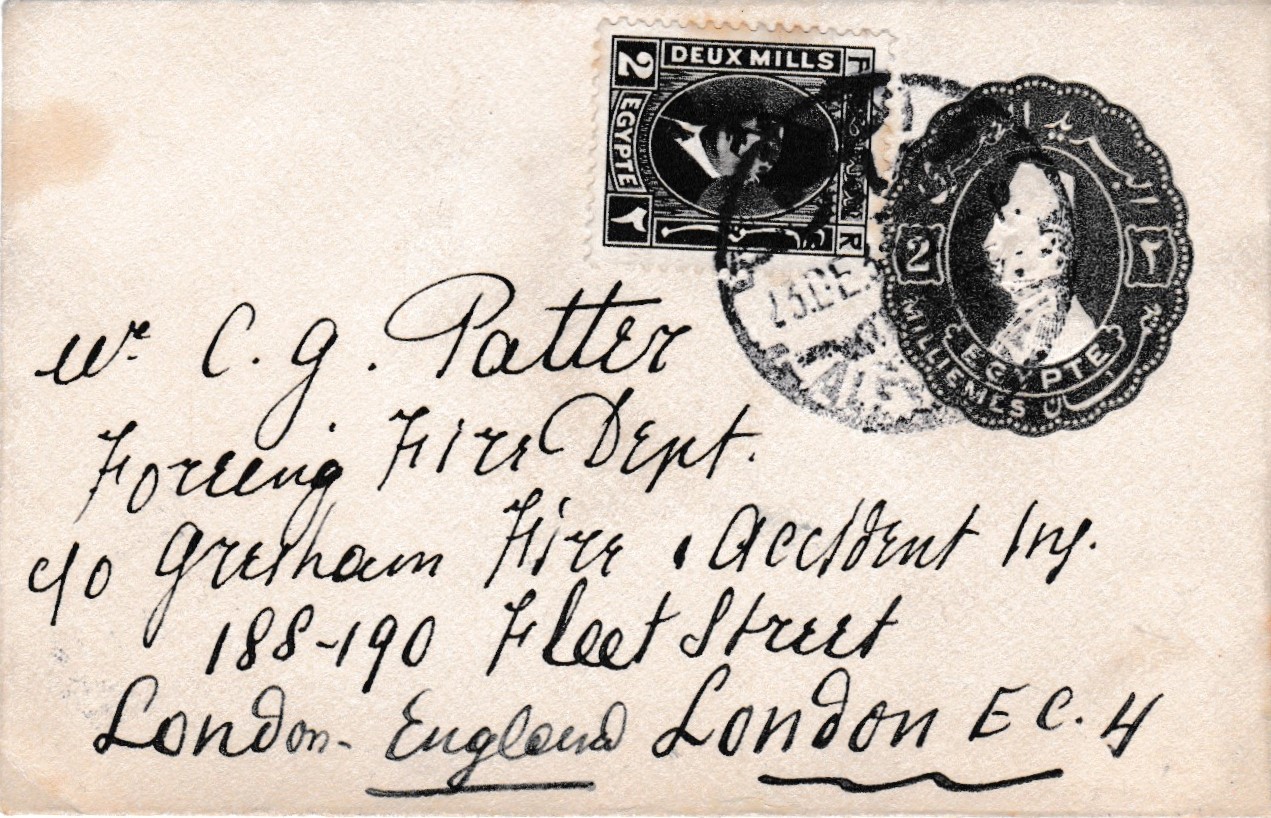 DEUX MILLS
2
EGYPTE
٢
R
23.DE
البريد
2
٢
MILLIEMES
EGYPTE
Mr C. G. Patter
Foreeing Fire Dept.
c/o Gresham Fire & Accident Ins.
188-190 Fleet Street
London - England London E C. 4